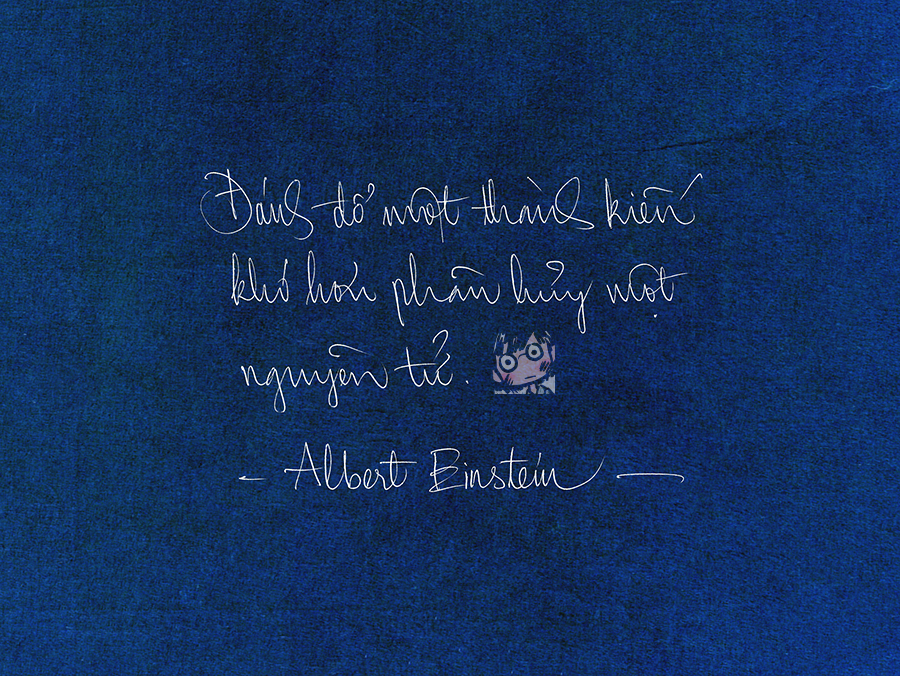 Đánh đổ một thành kiến
khó hơn phân hủy một
nguyên tử.
- Albert Einstein -